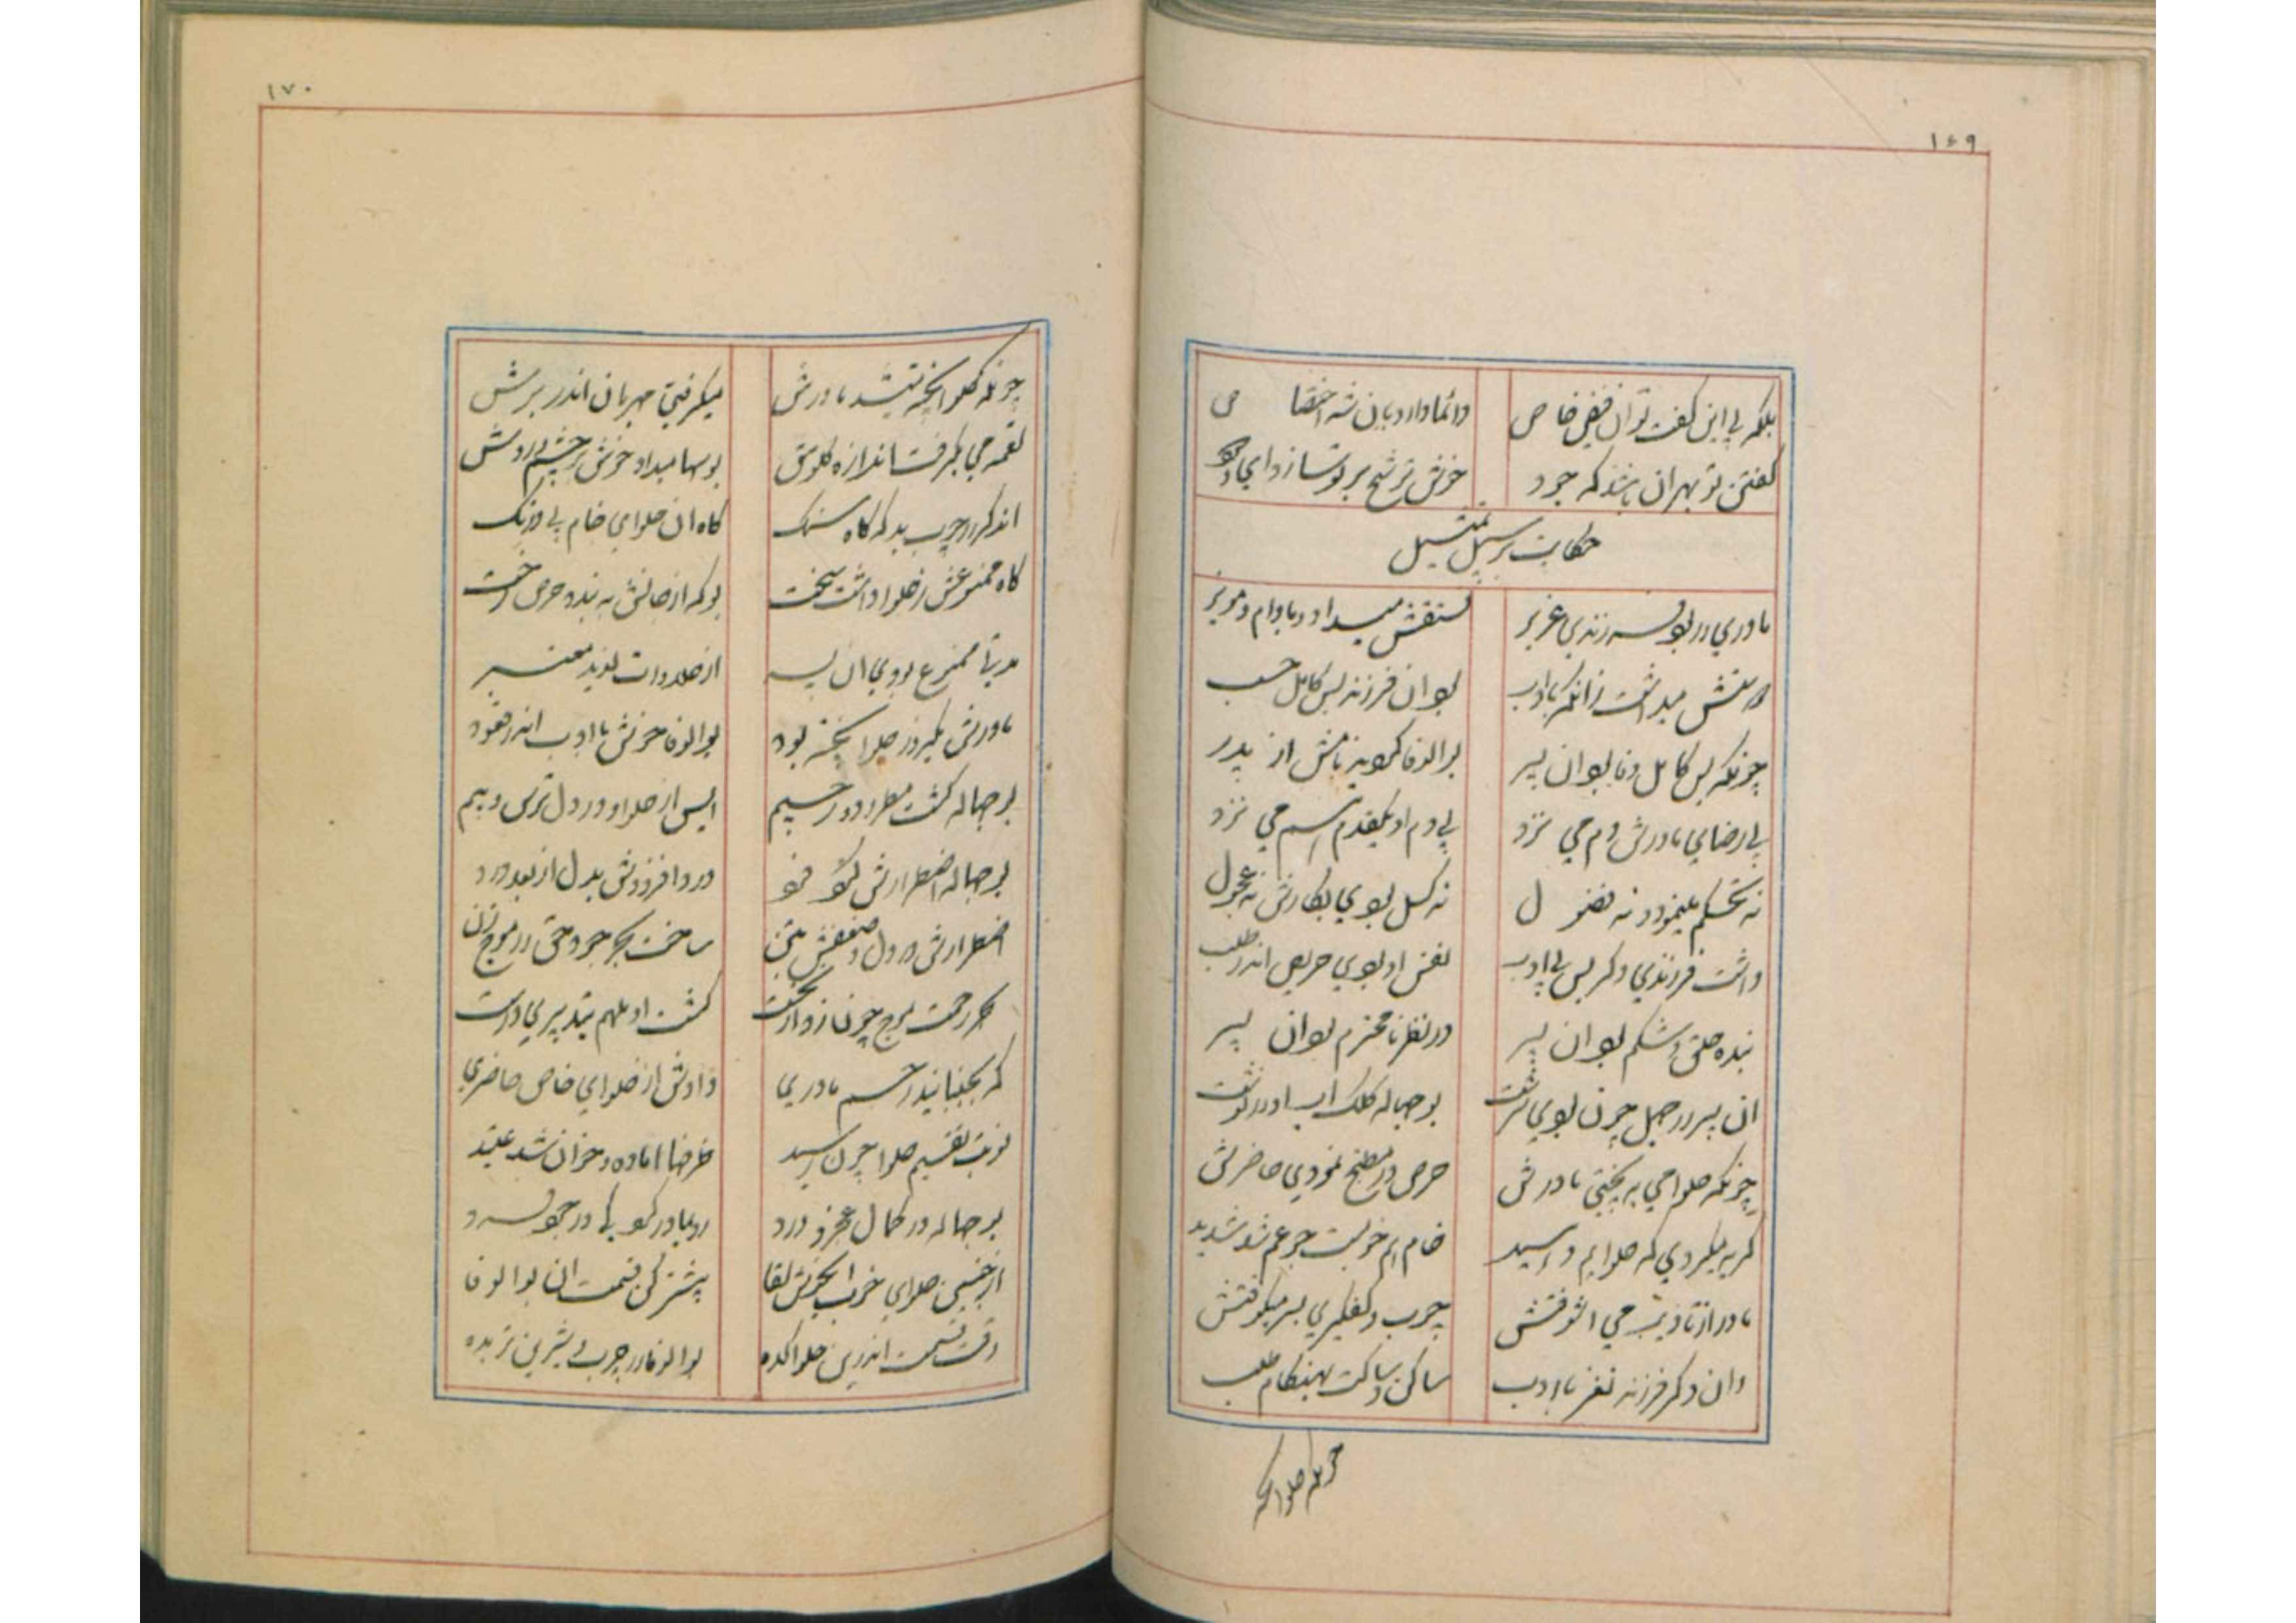 ١٦٩
بلکه بی این گفت تو آن فیض خاص دائما دارد بآن شه اختصاص
گفتن تو بهر آن باشد که جود خوش ترشح بر تو سازد ای
حکایت بر سبیل تمثیل
مادری را بود فرزندی عزیز مستقش میداد و بادام و مویز
میداشت زانکه با ادب بود آن فرزند بس کامل حسب
چونکه بس کامل وفا بود آن پسر بوالوفا گوید نامش از پدر
بی رضای مادرش دم می نزد بی دم او یکقدم هم می نزد
نه تحکم مینمود و نه فضول نه کسل بودی بکارش نه عجول
داشت فرزندی دکر بس بی ادب نفس او بودی حریص اندر طلب
بنده حلق و شکم بود آن پسر در نظر نامحترم بود آن پسر
آن پسر در جهل چون بودی سرشت بوجهاله کلک اب او را نوشت
چونکه حلوا می به پختی مادرش حرص در مطبخ نمودی حاضرش
گریه میکردی که حلوایم دهید خام هم خوبست جوعم شد شدید
مادر از تادیب می آشوفتش چوب و کفگیری بسر میکوفتش
وان دکر فرزند نغز با ادب ساکن و ساکت بهنکام طلب
چونکه حلوا پخته
١٧٠
چونکه حلوا پخته میشد مادرش میکرفتی مهربان اندر برش
لقمه می بکرفت اندازه کلوش بوسها میداد خوش بر چشم و روش
آن دکر را چوب بد که کاه سنک کاه آن حلوای خام بی درنک
کاه ممنوعش ز حلوا داشت سخت بو که از جانش به بندد حرص رخت
مدتی ممنوع بودی آن پسر از حلاوات لذیذ معتبر
مادرش یکروز حلوا پخته بود بوالوفا خوش با ادب اندر قعود
بوجهاله کشت مطرود و رجیم آیس از حلوا و در دل ترس و بیم
بوجهاله اضطرارش نو نو درد افزودش بدل از بعد درد
اضطرارش در دل و ضعفش بتن ساخت بحر جود حق را موج زن
بحر رحمت موج چون زد از نخست کشت او ملهم بتدبیری درست
که بجنبانید رحم مادری دادش از حلوای خاص حاضری
نوبت تقسیم حلوا چون رسید ظرفها آماده و خوان شد عتید
بوجهاله در کمال عجز و درد رو بمادر کو یکا در جود فرد
از چنین حلوای خوب خوش لقا بیشتر کن قسمت آن بوالوفا
وقت قسمت اندرین حلواکده بوالوفا را چرب و شیرین تر بده